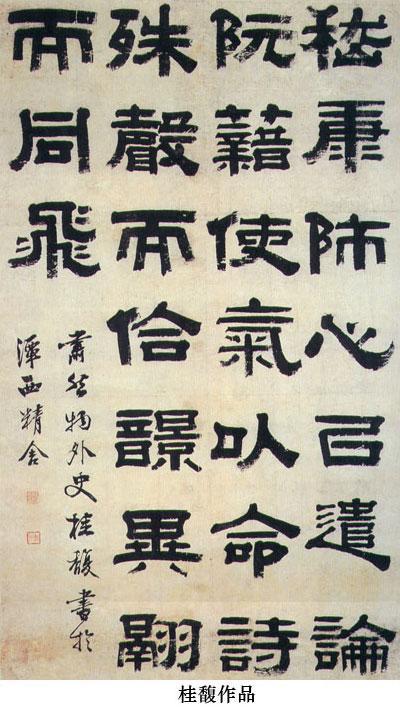 嵇康師心㠯遣論
阮藉使氣以命詩
殊聲而佮響異翮
而同飛
肅然物外史桂馥書於
潭西精舍
桂馥作品